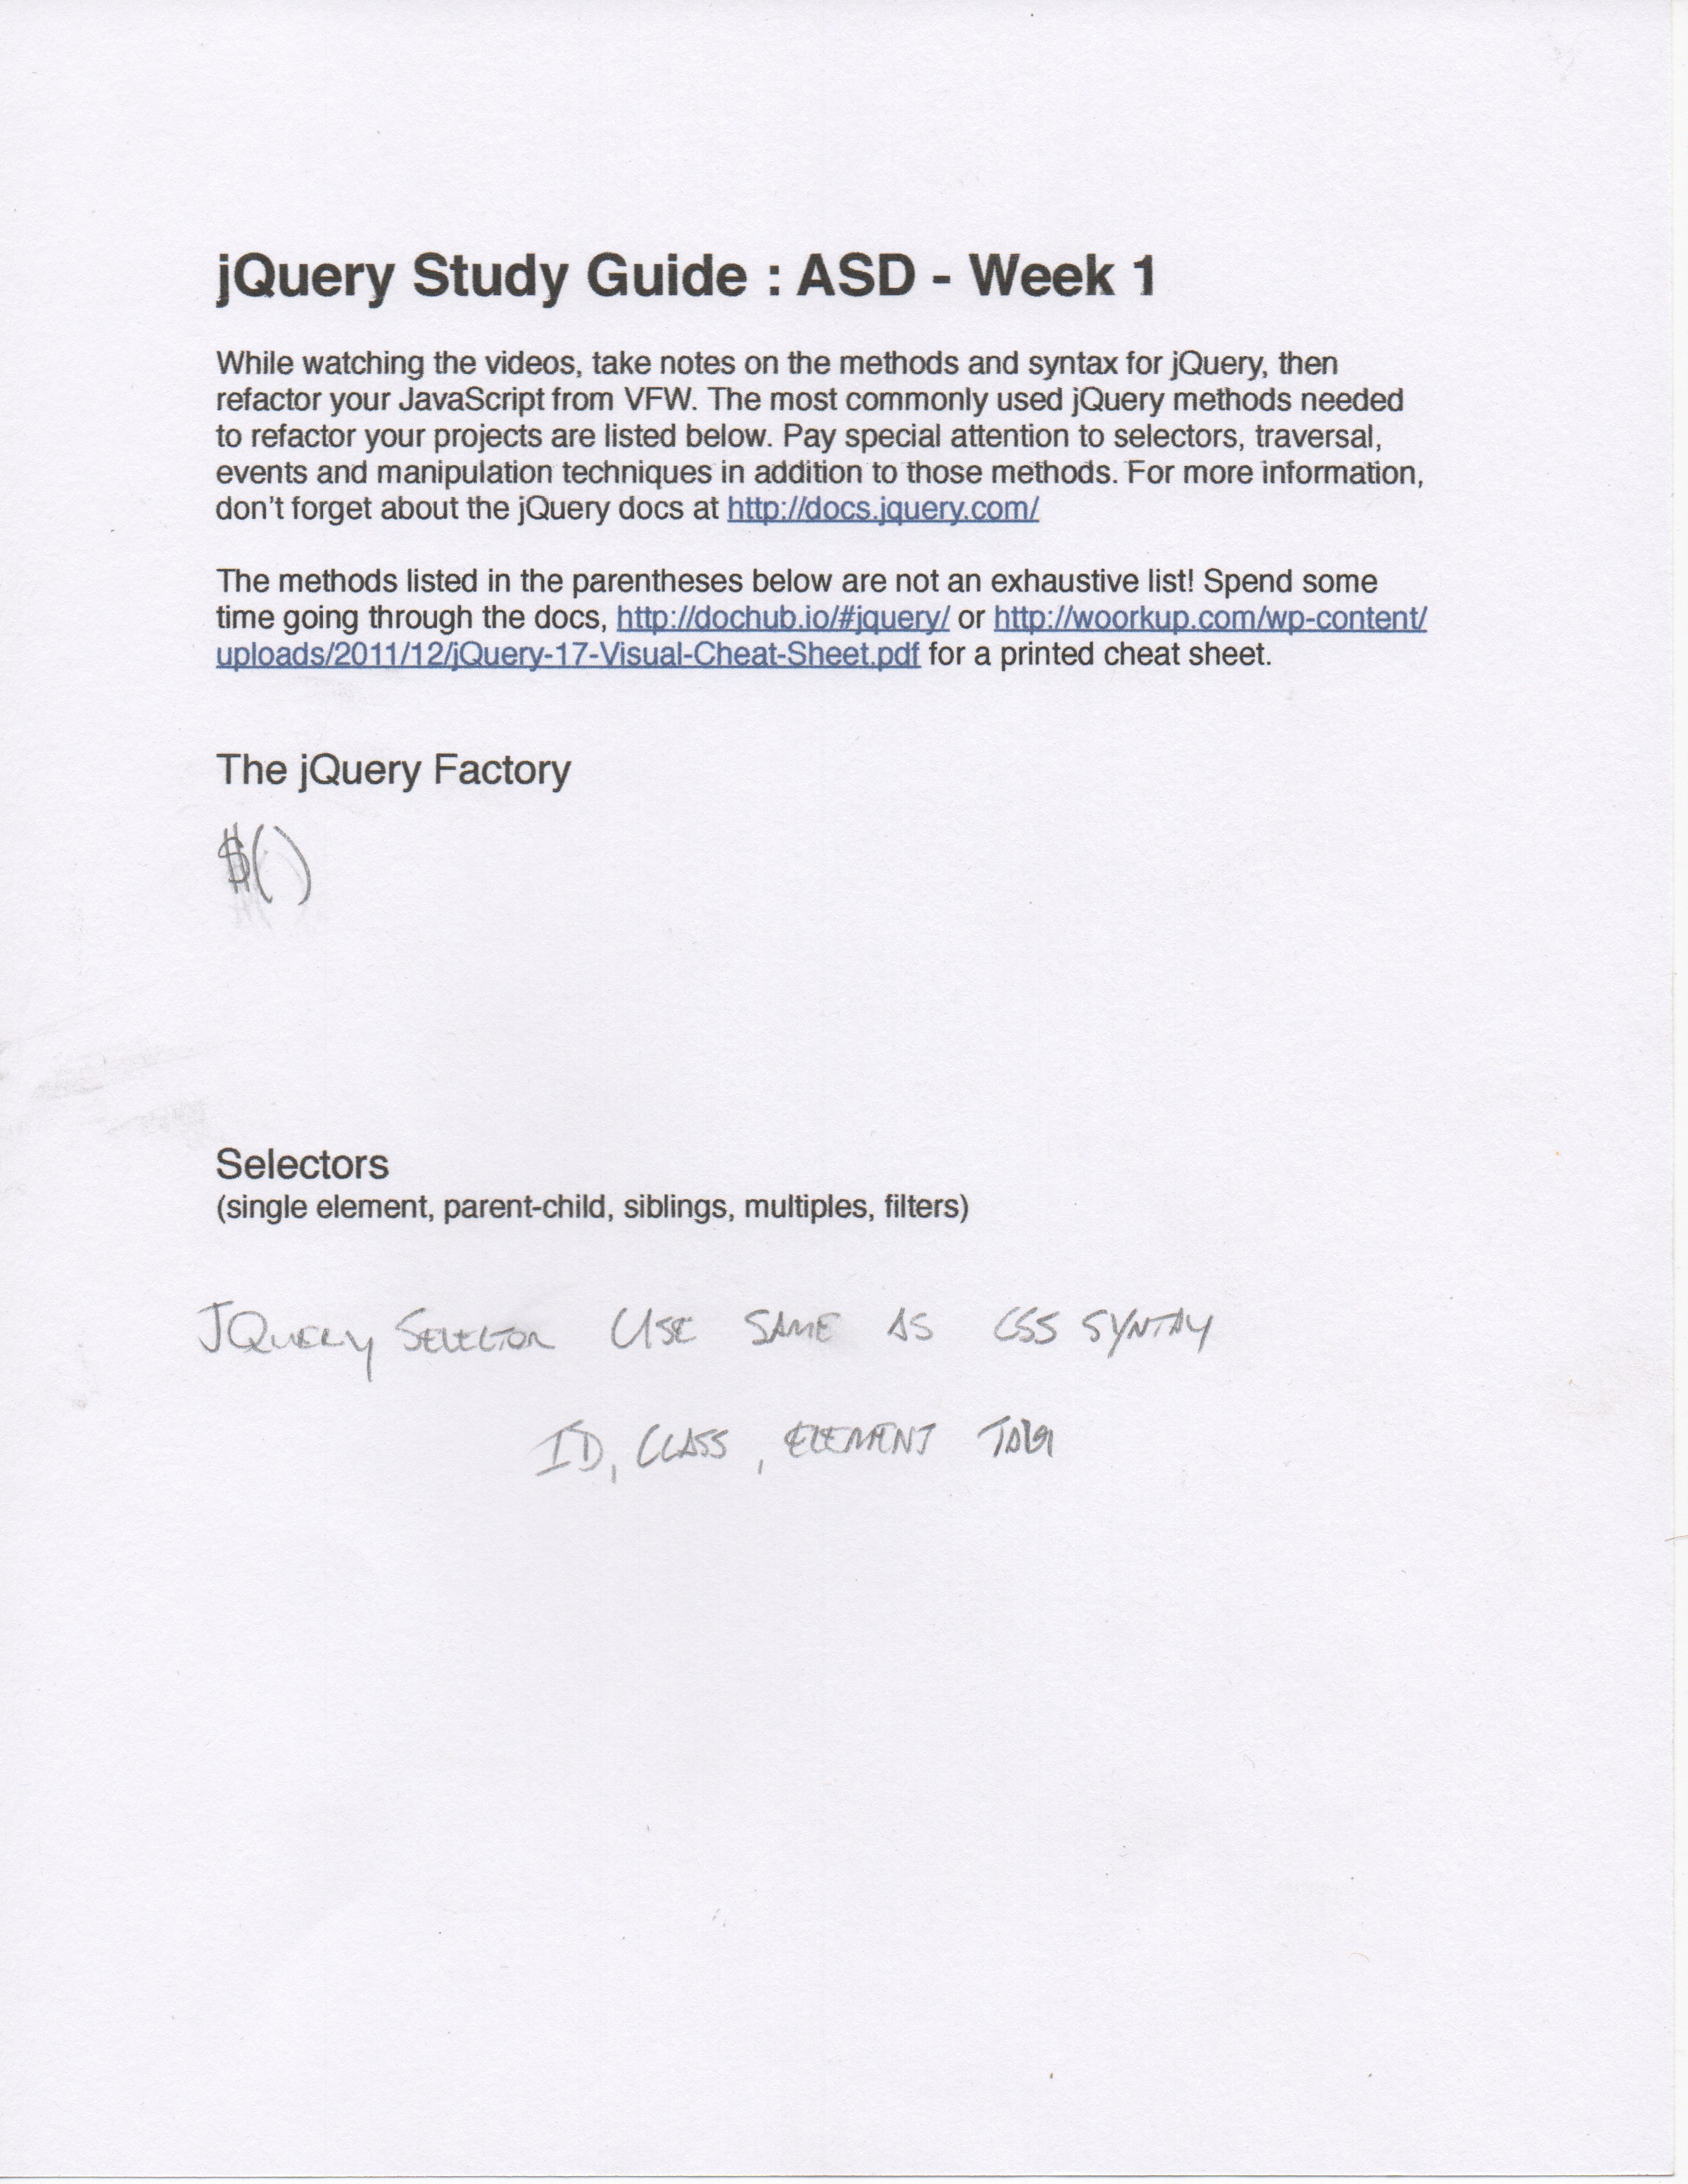 jQuery Study Guide : ASD - Week 1
While watching the videos, take notes on the methods and syntax for jQuery, then
refactor your JavaScript from VFW. The most commonly used jQuery methods needed
to refactor your projects are listed below. Pay special attention to selectors, traversal,
events and manipulation techniques in addition to those methods. For more information,
don't forget about the jQuery docs at http://docs.jquery.com/
The methods listed in the parentheses below are not an exhaustive list! Spend some
time going through the docs, http://dochub.io/#jquery/ or http://woorkup.com/wp-content/
uploads/2011/12/jQuery-17-Visual-Cheat-Sheet.pdf for a printed cheat sheet.
The jQuery Factory
$()
Selectors
(single element, parent-child, siblings, multiples, filters)
JQUERY SELECTOR USE SAME AS CSS SYNTAX
ID, CLASS, ELEMENT TAG